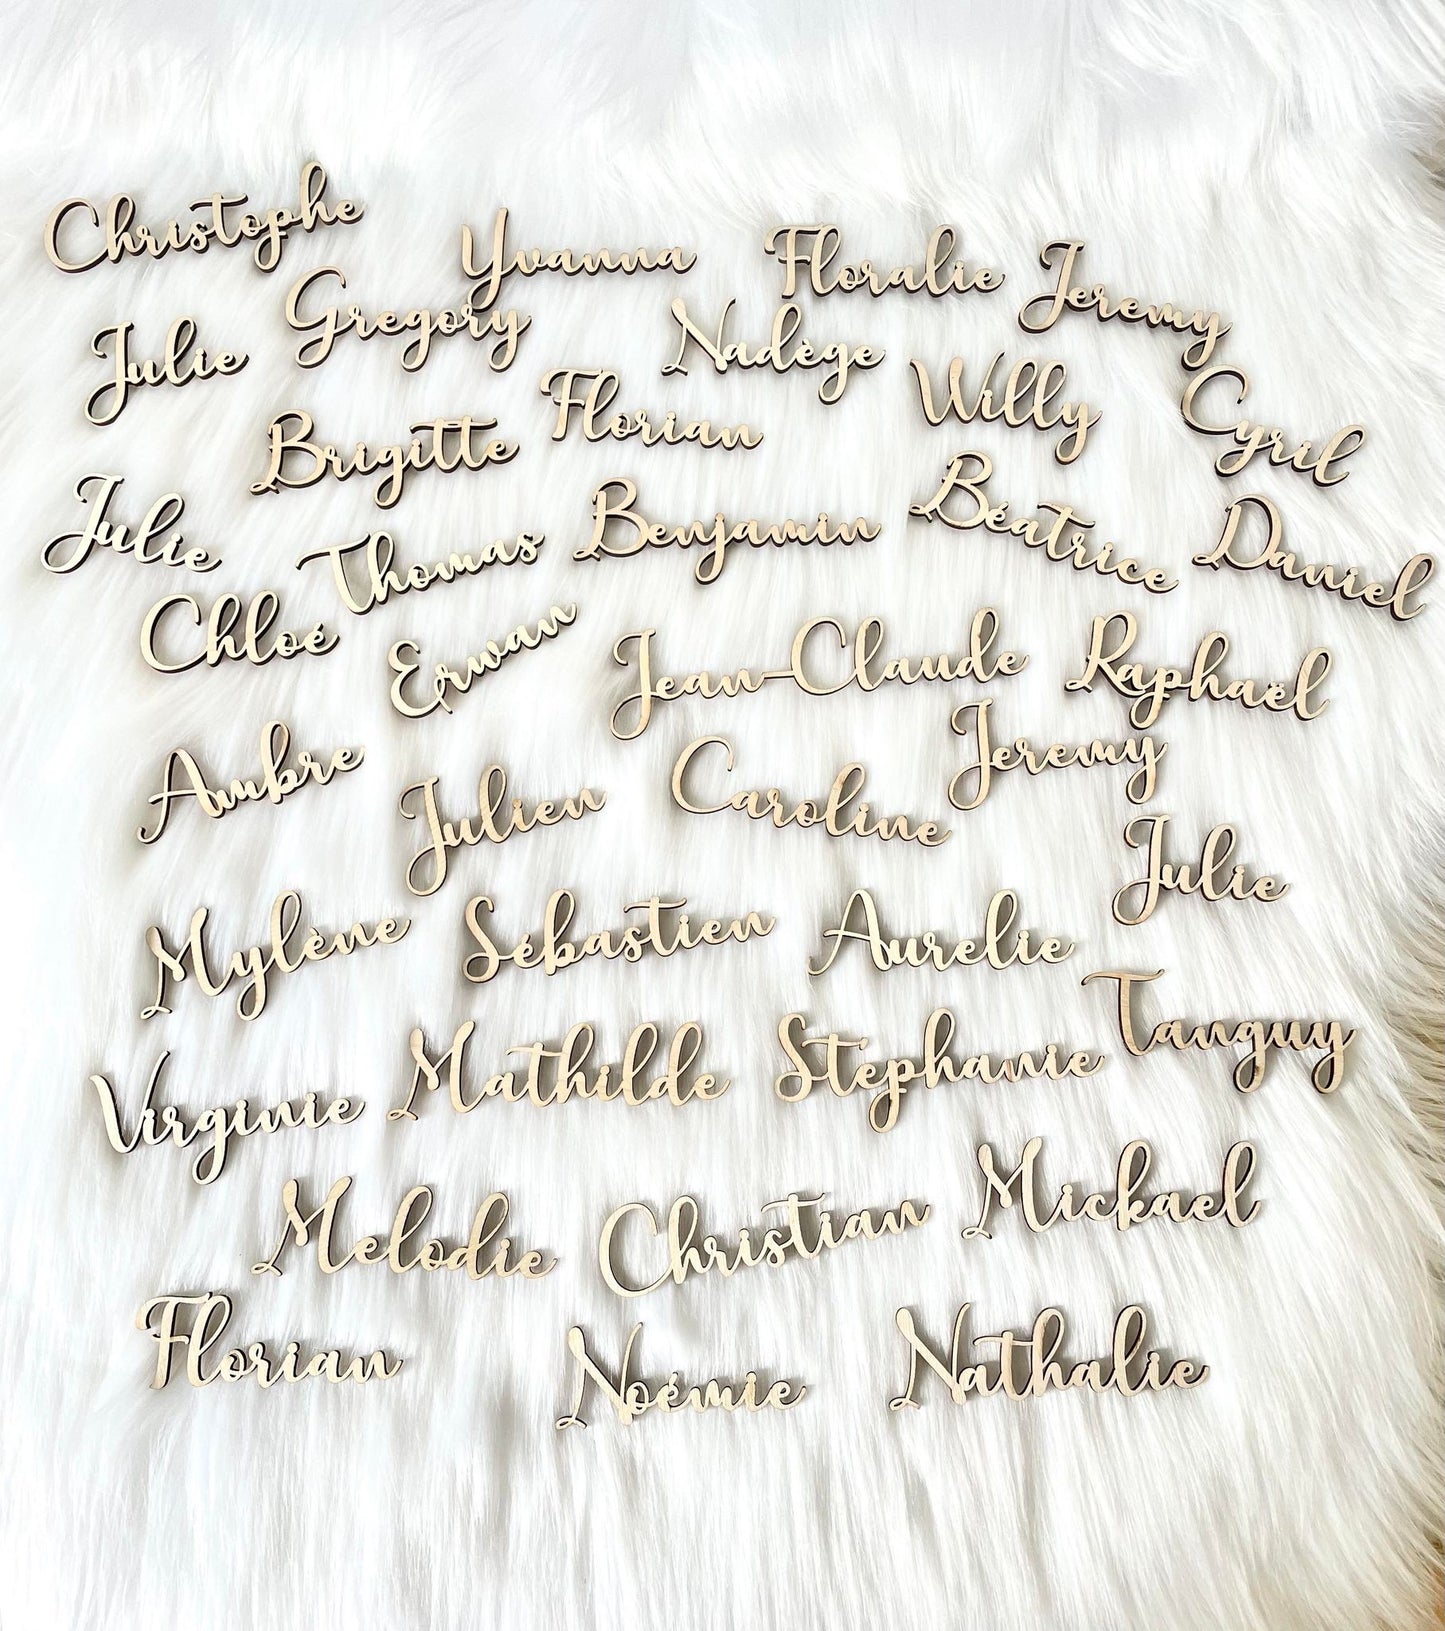 Christophe
Yvanna
Floralie
Jeremy
Gregory
Julie
Nadège
Willy
Florian
Cyril
Brigitte
Julie
Thomas
Benjamin
Béatrice
Daniel
Chloé
Erwan
Jean-Claude
Raphaël
Ambre
Julien
Caroline
Jeremy
Julie
Mylène
Sébastien
Aurelie
Tanguy
Virginie
Mathilde
Stéphanie
Melodie
Christian
Mickael
Florian
Noémie
Nathalie